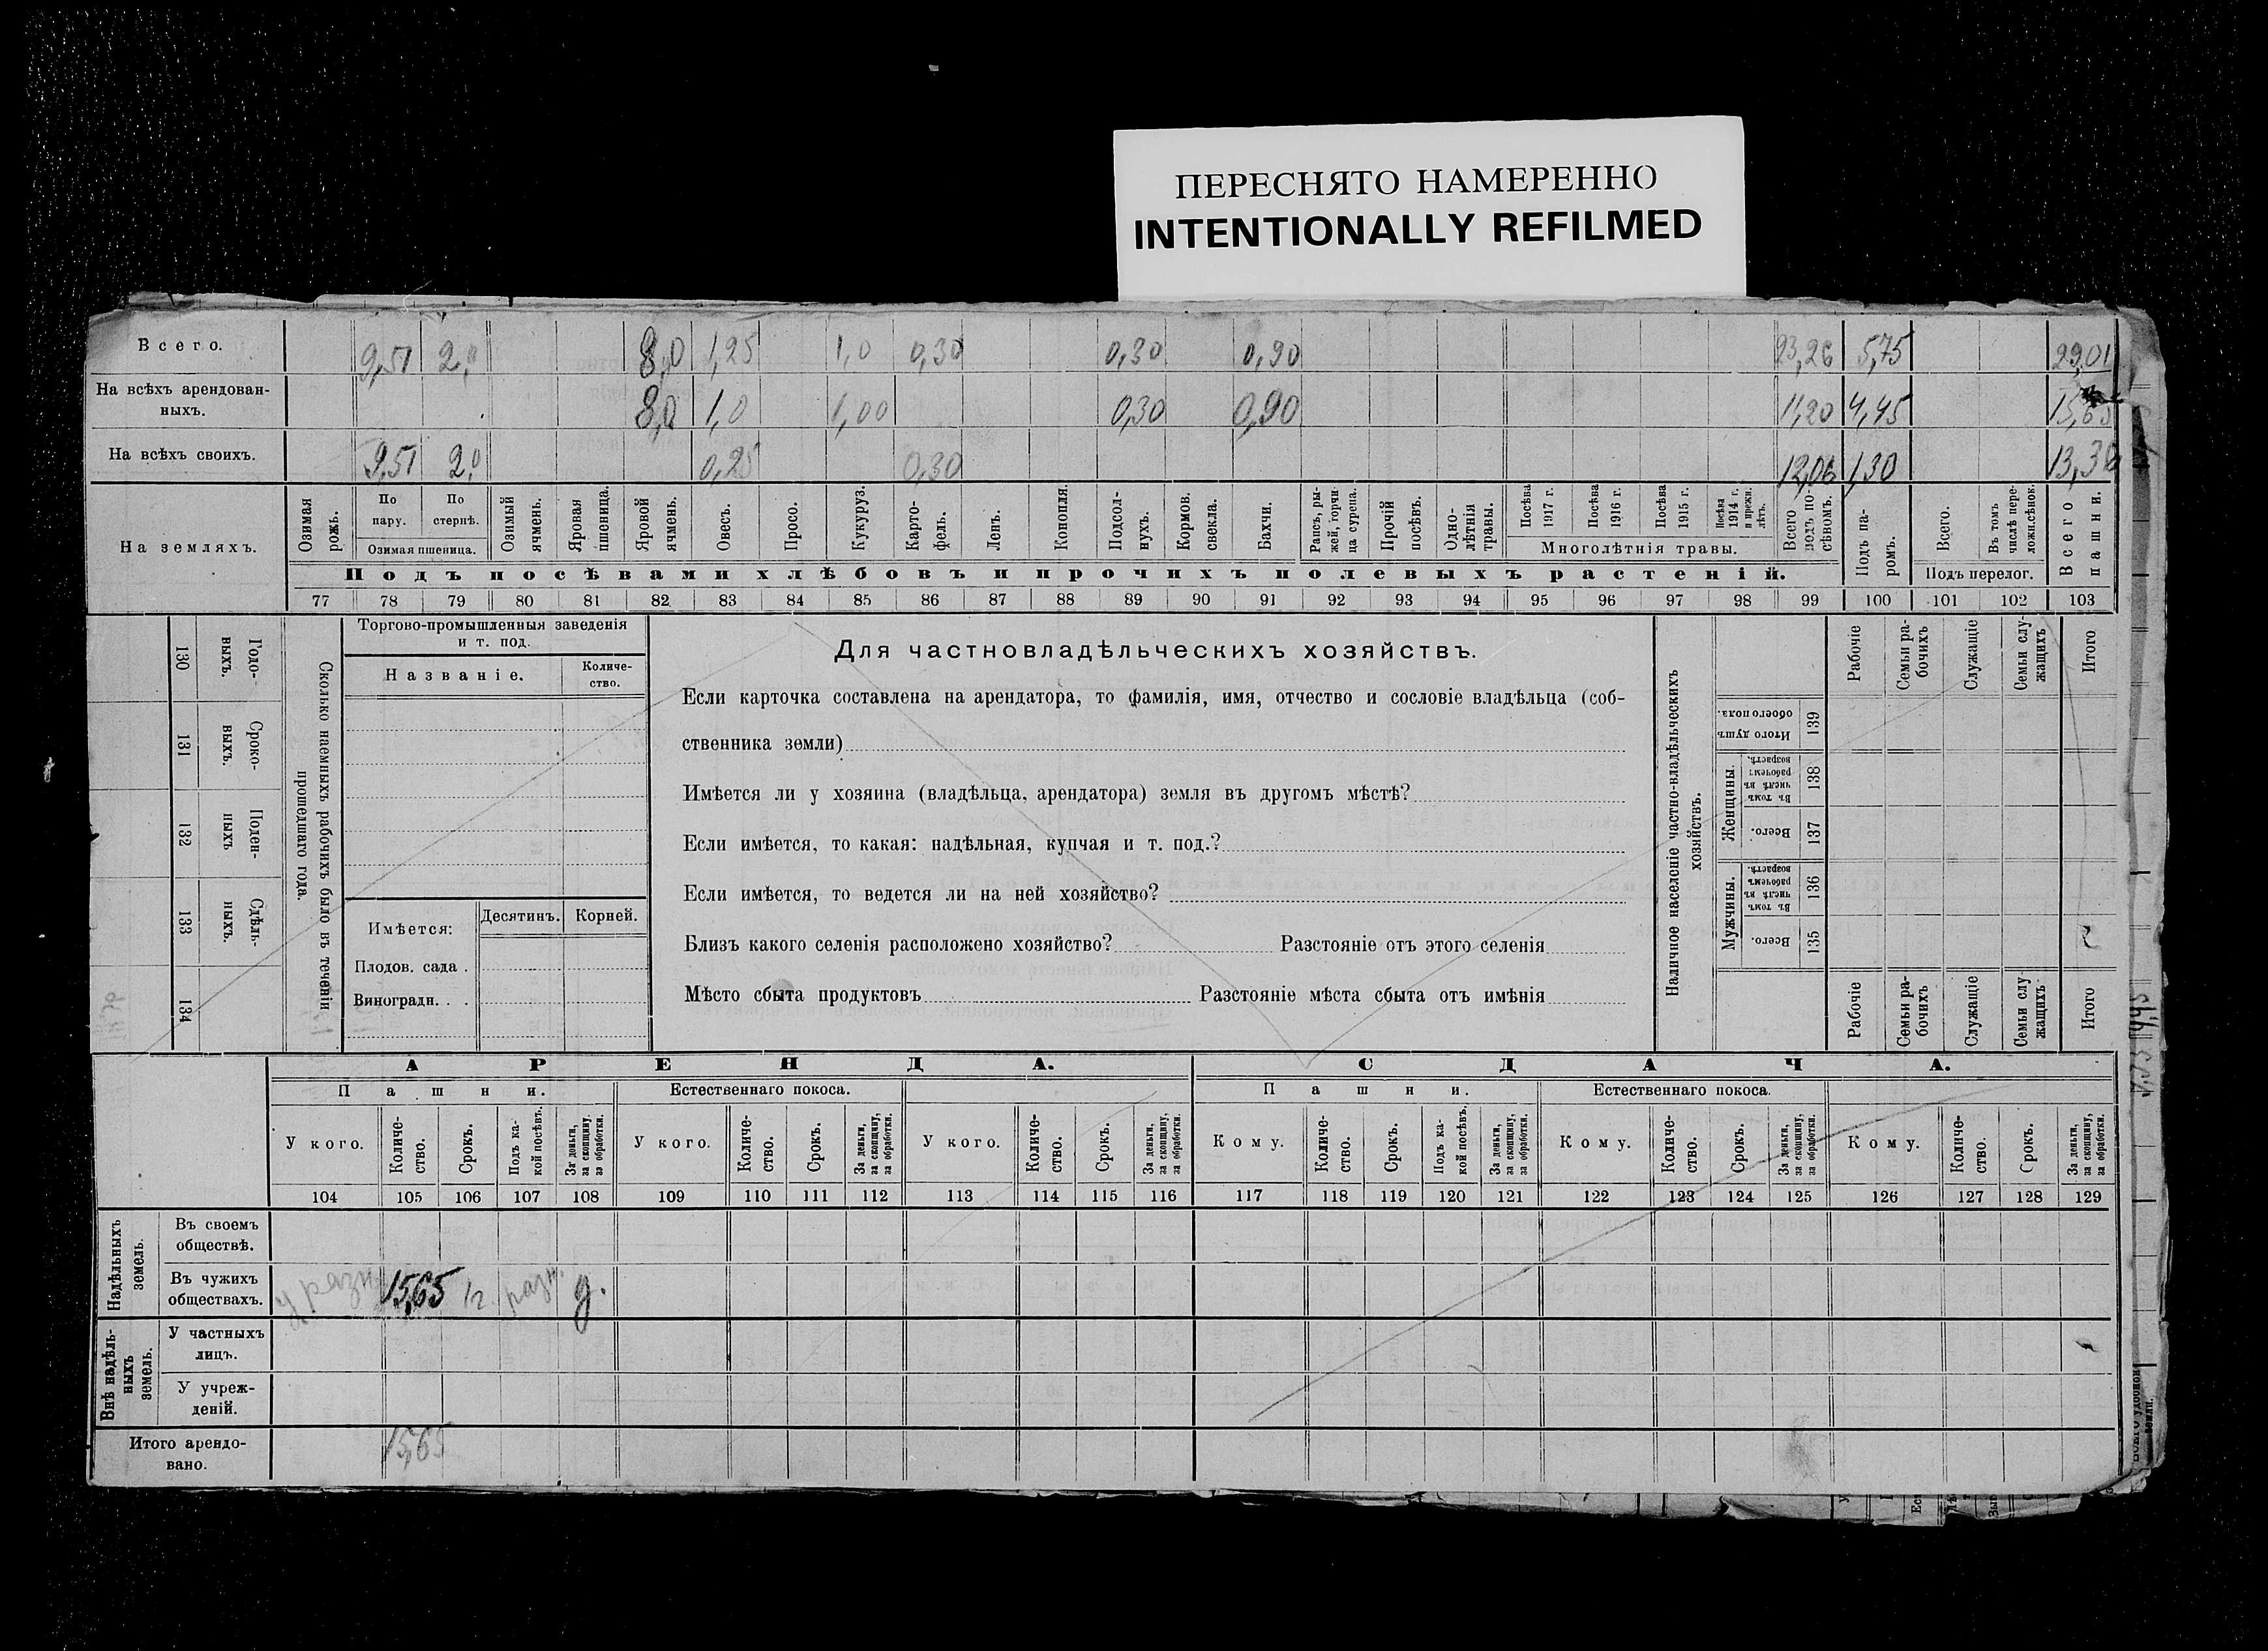 ПЕРЕСНЯТО НАМЕРЕННО
INTENTIONALLY REFILMED
Всего. 9,51 2,0 8,0 1,25 1,0 0,30 0,30 0,90 23,26 5,75 29,01
На всѣхъ арендован-
ныхъ. 8,0 1,0 1,00 0,30 0,90 11,20 4,45 15,65
На всѣхъ своихъ. 9,51 2,0 0,25 0,30 12,06 1,30 13,36
На земляхъ.
Озимая рожь.
По пару.
По стернѣ.
Озимая пшеница.
Озимый ячмень.
Яровая пшеница.
Яровой ячмень.
Овесъ.
Просо.
Кукуруз.
Карто-
фель.
Ленъ.
Конопля.
Подсол-
нухъ.
Кормов. свекла.
Бахчи.
Рапсъ, ры-
жей, горчи
ца сурепа.
Прочій посѣвъ.
Одно-
лѣтнія
травы.
Посѣва 1917 г.
Посѣва 1916 г.
Посѣва 1915 г.
Посѣва 1914 г. и прежн. лѣтъ.
Многолѣтнія травы.
Всего подъ по-
сѣвомъ.
Подъ па-
ромъ.
Всего.
Въ томъ числѣ пере-
ложн.сѣнок.
Подъ перелог.
Всего пашни.
Подъ посѣвами хлѣбовъ и прочихъ полевыхъ растеній.
77 78 79 80 81 82 83 84 85 86 87 88 89 90 91 92 93 94 95 96 97 98 99 100 101 102 103
130 Годо-
выхъ.
131 Сроко-
выхъ.
132 Поден-
ныхъ
133 Сдѣль-
ныхъ.
134
Сколько наемныхъ рабочихъ было въ теченіи
прошедшаго года.
Торгово-промышленныя заведенія
и т. под.
Названіе.
Количе-
ство.
Имѣется:
Десятинъ. Корней.
Плодов. сада .
Виноградн. . .
Для частновладѣльческихъ хозяйствъ.
Если карточка составлена на арендатора, то фамилія, имя, отчество и сословіе владѣльца (соб-
ственника земли)
Имѣется ли у хозяина (владѣльца, арендатора) земля въ другомъ мѣстѣ?
Если имѣется, то какая: надѣльная, купчая и т. под.?
Если имѣется, то ведется ли на ней хозяйство?
Близъ какого селенія расположено хозяйство? Разстояніе отъ этого селенія
Мѣсто сбыта продуктовъ Разстояніе мѣста сбыта отъ имѣнія
Наличное населеніе частно-владѣльческихъ
хозяйствъ.
Рабочіе
Семьи ра-
бочихъ
Служащіе
Семьи слу-
жащихъ
Итого
Итого душъ обоего пола. 139
Женщины.
Въ томъ числѣ въ рабочемъ возрастѣ. 138
Всего. 137
Мужчины.
Въ томъ числѣ въ рабочемъ возрастѣ. 136
Всего. 135
Рабочіе
Семьи ра-
бочихъ
Служащіе
Семьи слу
жащихъ
Итого
АРЕНДА.
СДАЧА.
Пашни. Естественнаго покоса. Пашни. Естественнаго покоса.
У кого.
Количе-
ство.
Срокъ.
Подъ ка-
кой посѣвъ.
За деньги,
за скопщину,
за обработки.
У кого.
Количе-
ство.
Срокъ.
За деньги,
за скопщину,
за обработки.
У кого.
Количе-
ство.
Срокъ.
За деньги,
за скопщину,
за обработки.
Кому.
Количе-
ство.
Срокъ.
Подъ ка-
кой посѣвъ.
За деньги,
за скопщину,
за обработки.
Кому.
Количе-
ство.
Срокъ.
За деньги,
за скопщину,
за обработки.
Кому.
Количе-
ство.
Срокъ.
За деньги,
за скопщину,
за обработки.
104 105 106 107 108 109 110 111 112 113 114 115 116 117 118 119 120 121 122 123 124 125 126 127 128 129
Надѣльныхъ
земель.
Въ своемъ
обществѣ.
Въ чужихъ
обществахъ.
у разн. 15,65 1г. разн. д.
Внѣ надѣль-
ныхъ
земель.
У частныхъ
лицъ.
У учреж-
деній.
Итого арендо-
вано. 15,65